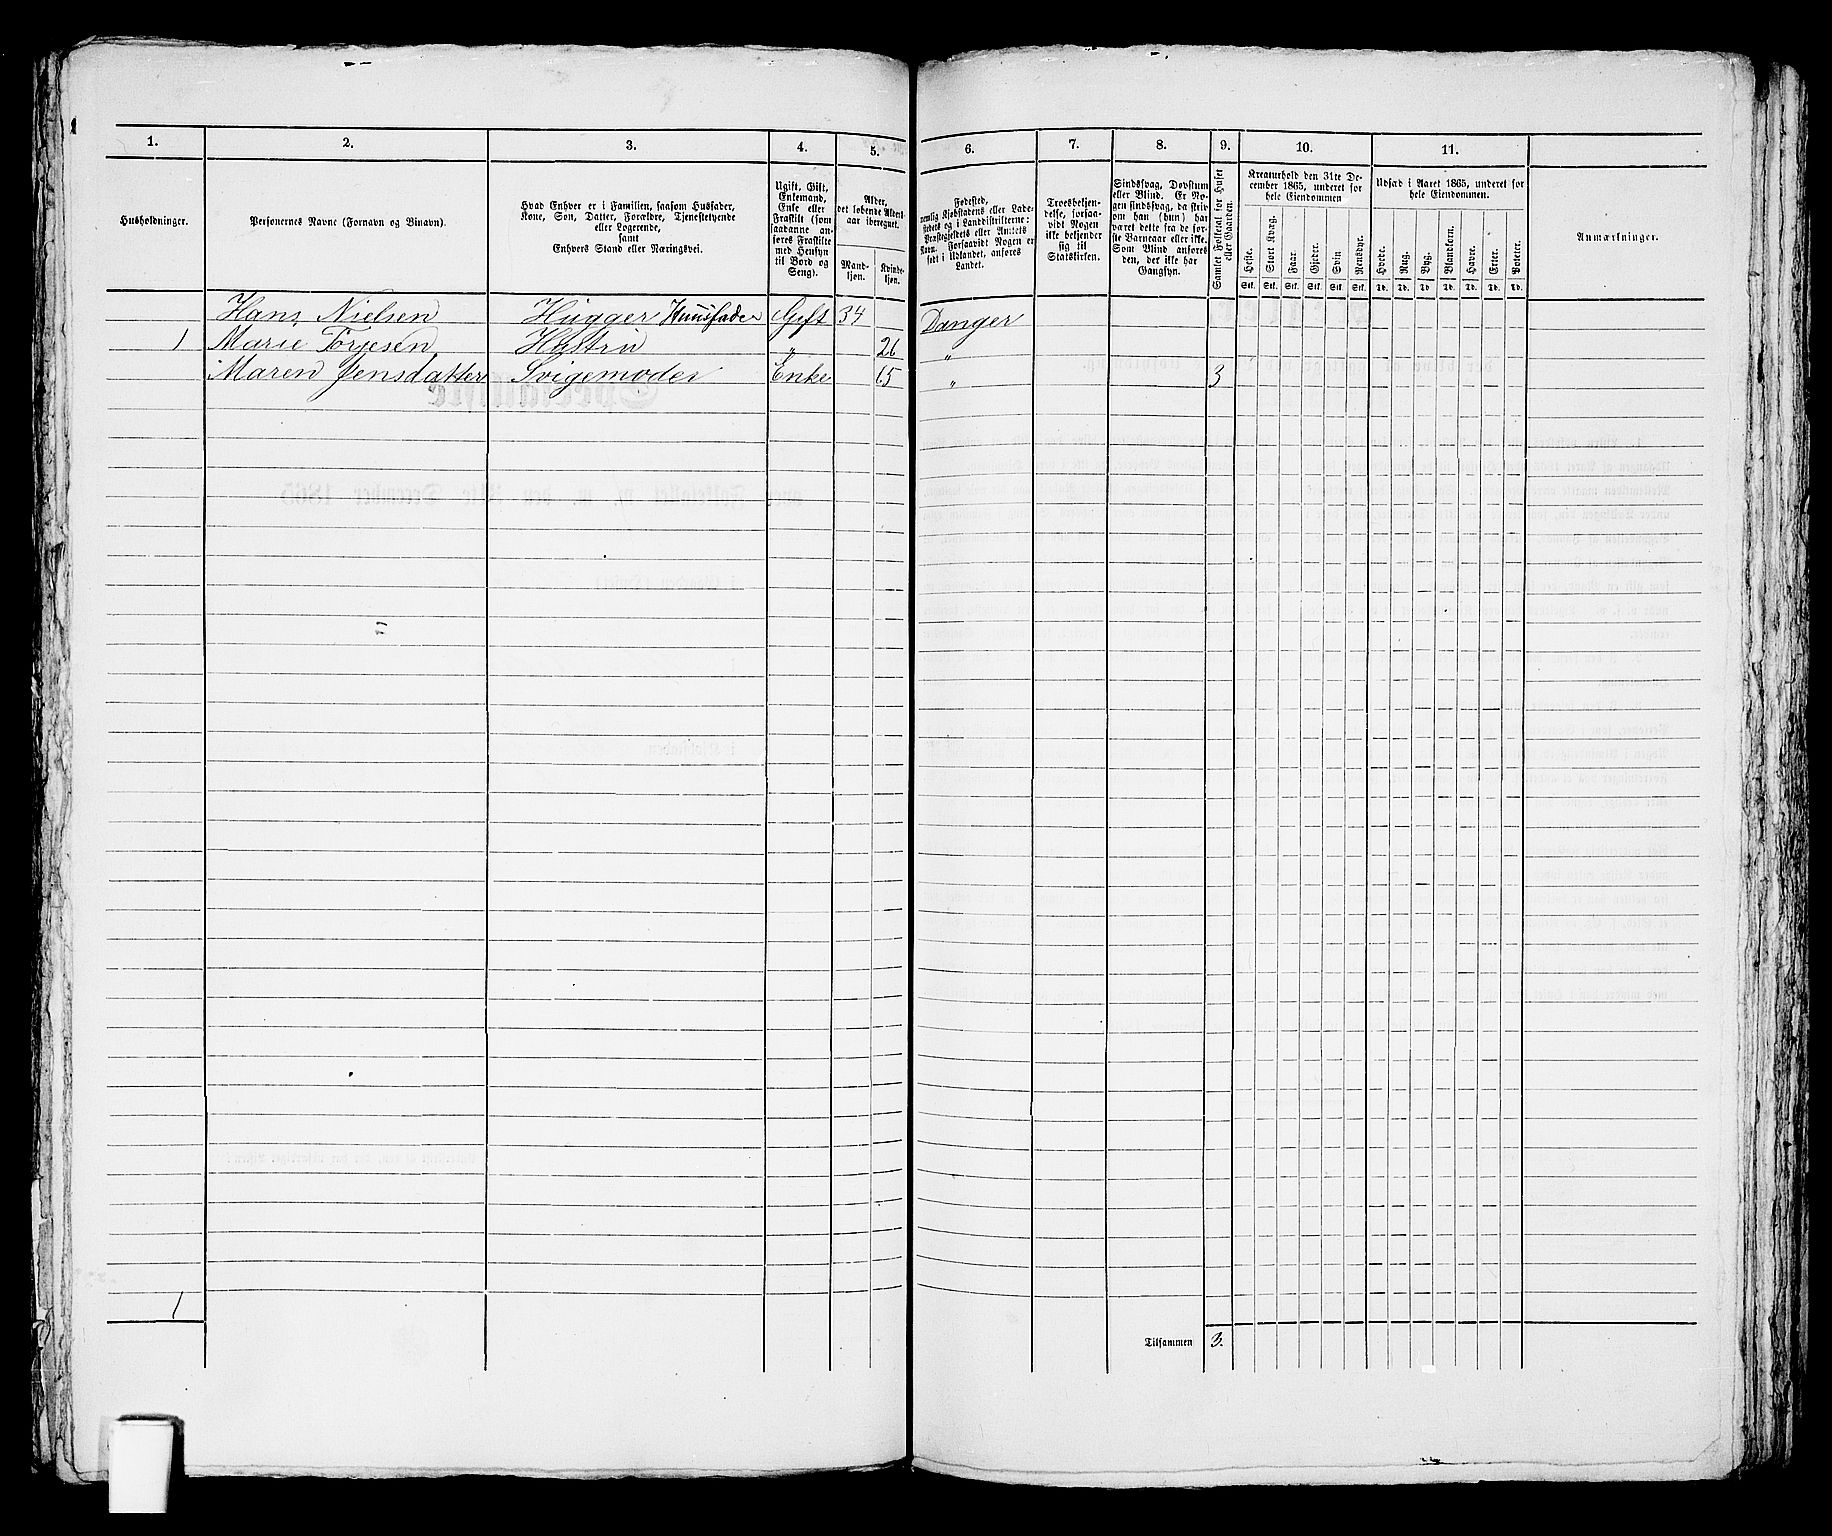 1.
2.
3.
4.
5.
6.
7.
8.
9.
10.
11.
Husholdninger.
Personernes Navne (Fornavn og Binavn).
Hvad Enhver er i Familien, saasom Husfader,
Kone, Søn, Datter, Forældre, Tjenestetyende
eller Logerende,
samt
Enhvers Stand eller Næringsvei.
Ugift, Gift,
Enkemand,
Enke eller
Fraskilt (som
saadanne an-
føres Fraskilte
med Hensyn
til Bord og
Seng).
Alder,
det løbende Alders-
aar iberegnet.
Mand-
kjøn.
Kvinde-
kjøn.
Fødested,
nemlig Kjøbstadens eller Lade-
stedets og i Landdistrikterne:
Præstegjeldets eller Amtets
Navn. Forsaavidt Nogen er
født i Udlandet, anføres
Landet.
Troesbekjen-
delse, forsaa-
vidt Nogen
ikke bekjender
sig til
Statskirken.
Sindssvag, Døvstum
eller Blind. Er No-
gen sindssvag, da skriv
om han (hun) har
været dette fra de før-
ste Barneaar eller ikke.
Som Blind anføres
den, der ikke har
Gangsyn.
Samlet Folketal for Huset
eller Gaarden.
Kreaturhold den 31te De-
cember 1865, underet for
hele Eiendommen
Heste.
Stort Kvæg.
Faar.
Gjeder.
Svin
Rensdyr.
Stk. Stk. Stk. Stk. Stk. Stk.
Udsæd i Aaret 1865, underet for
hele Eiendommen.
Hvede.
Rug.
Byg.
Blandkorn.
Havre.
Erter.
Poteter.
Td. Td. Td Td. Td. Td. Td.
Anmærkninger.
Hans Nielsen Hugger Huusfader Gift 34 Danger
1 Marie Torjesen Hustru „ 26 „
Maren Jensdatter Svigemoder Enke 65 „ 3
1
Tilsammen 3.